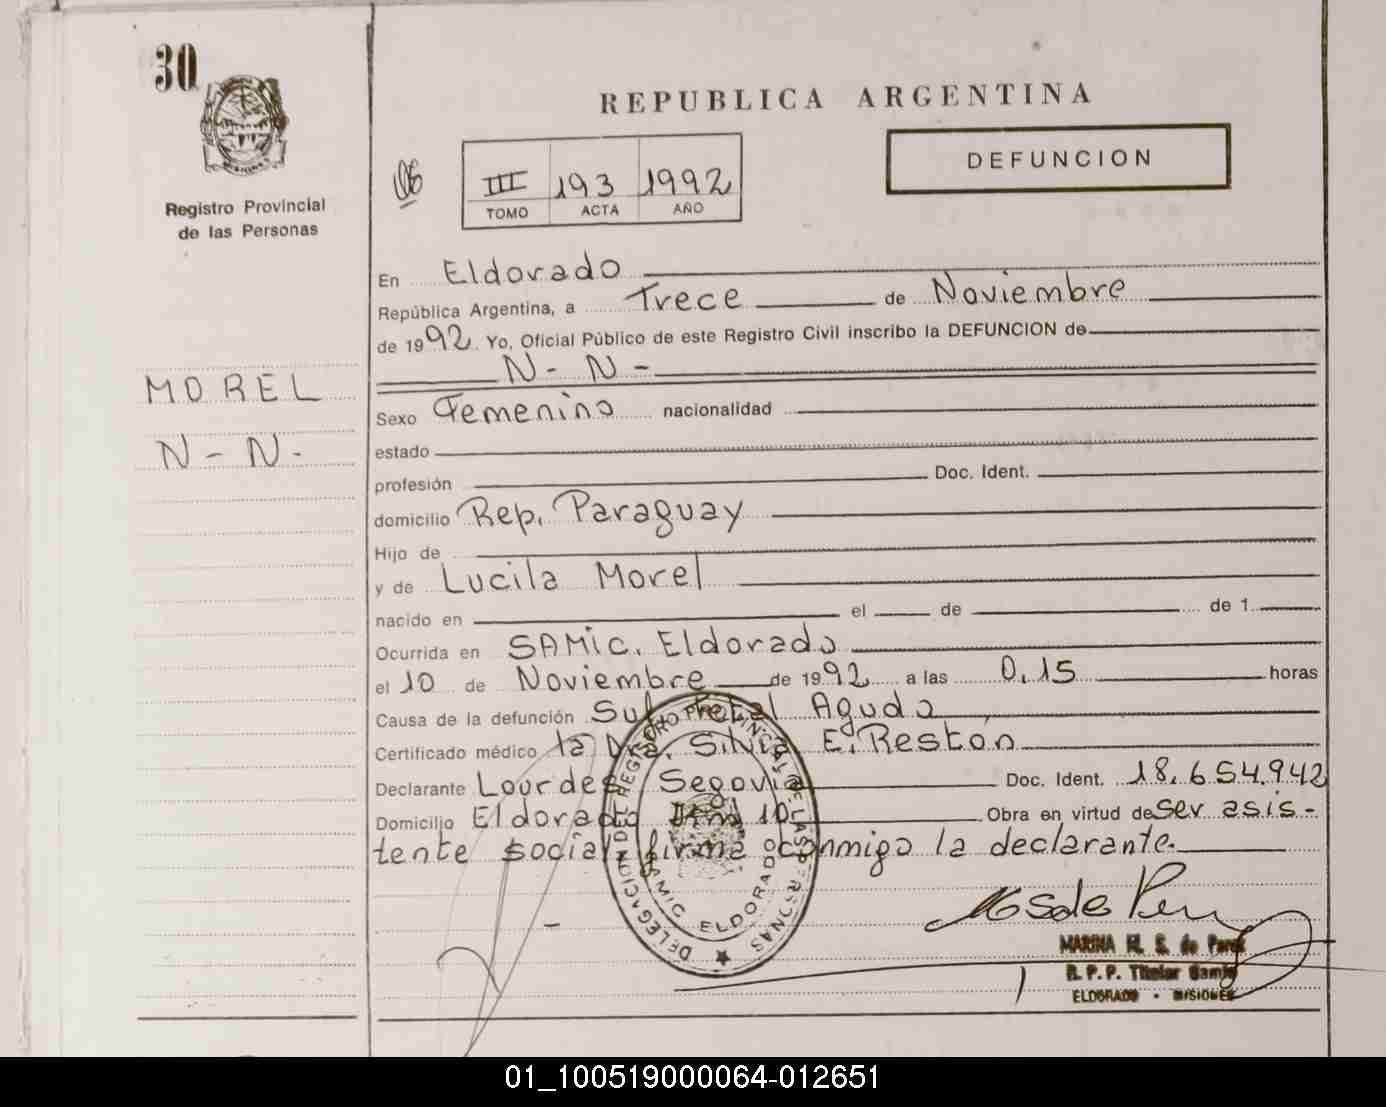 30
REPUBLICA ARGENTINA
III 193 1992
TOMO ACTA AÑO
DEFUNCION
Registro Provincial
de las Personas
MOREL
N - N -
En Eldorado
República Argentina, a Trece de Noviembre
de 1992 Yo, Oficial Público de este Registro Civil inscribo la DEFUNCION de
N - N -
Sexo Femenino nacionalidad
estado
profesión Doc. Ident.
domicilio Rep. Paraguay
Hijo de
y de Lucila Morel
nacido en el de de 1
Ocurrida en SAMIC. Eldorado
el 10 de Noviembre de 1992 a las 0,15 horas
Causa de la defunción Suf. Fetal Aguda
Certificado médico la Dra. Silvia E. Restón
Declarante Lourdes Segovia Doc. Ident. 18.654.942
Domicilio Eldorado Km 10 Obra en virtud de ser asis-
tente social firma conmigo la declarante.
DELEGACION DE REGISTRO PROVINCIAL DE LAS PERSONAS
SAMIC ELDORADO
MARINA R. S. de
R. P. P. Titular Samic
ELDORADO - MISIONES
01_100519000064-012651